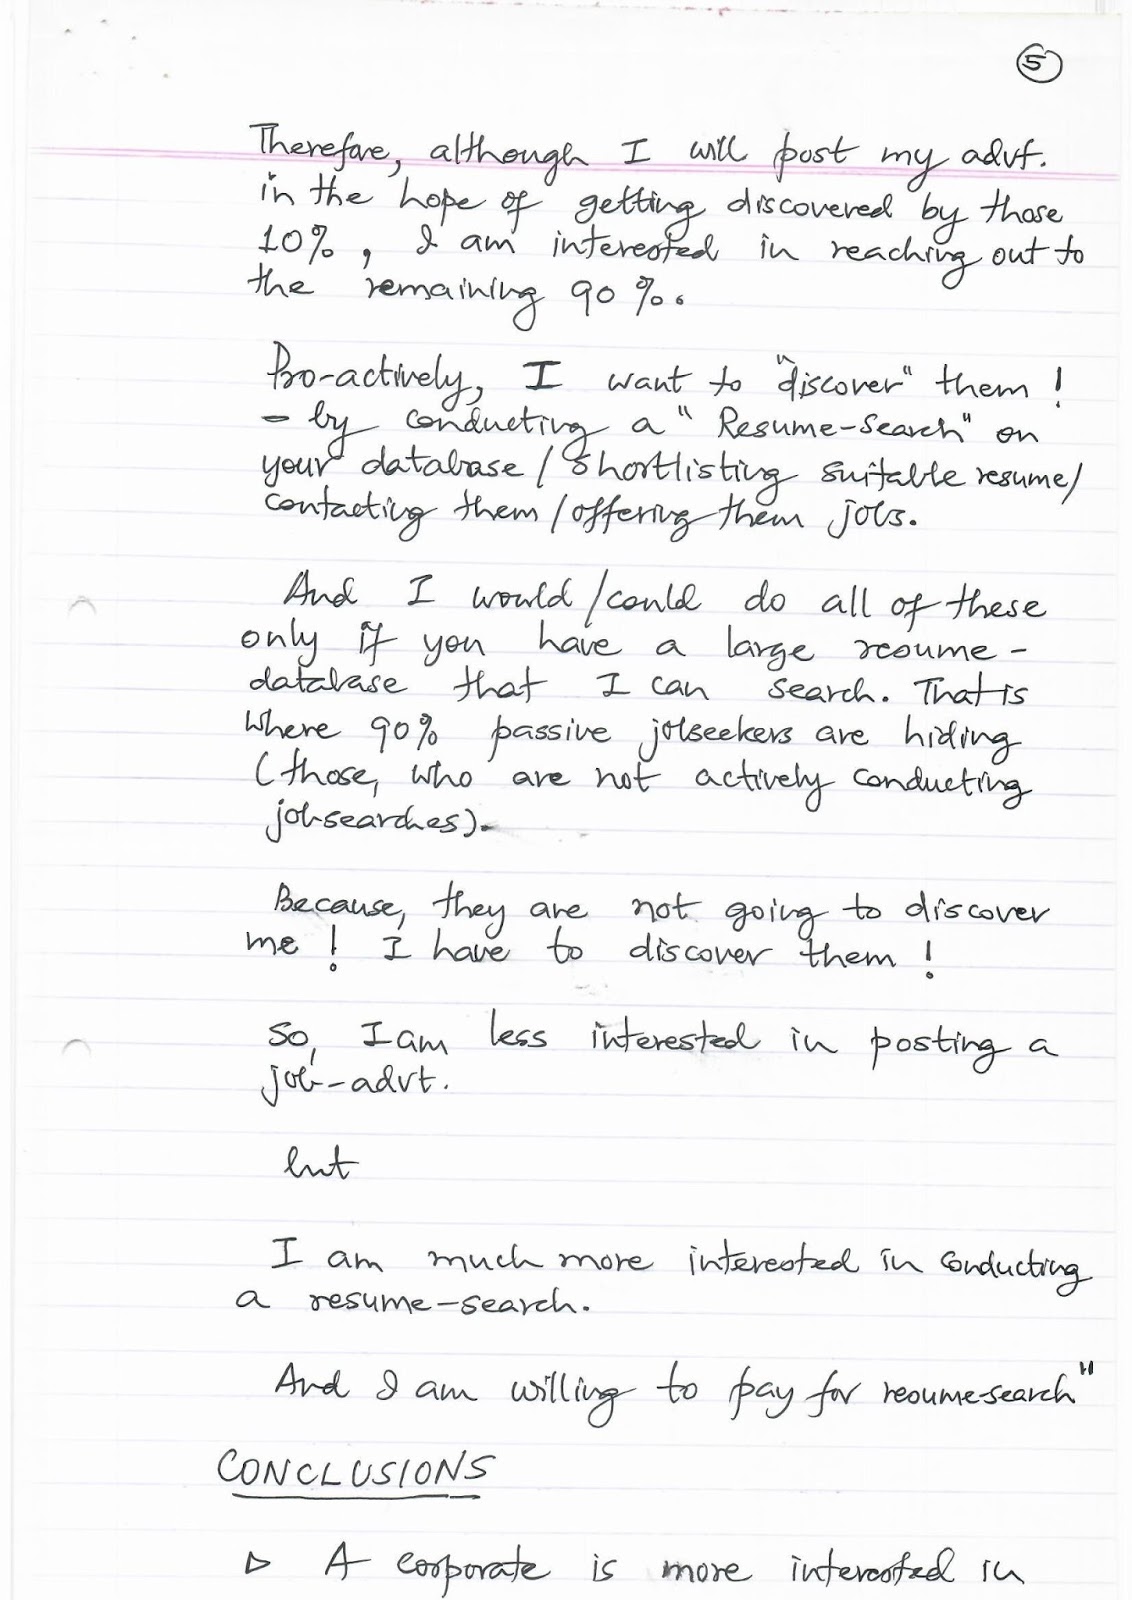 5
Therefore, although I will post my advt.
in the hope of getting discovered by those
10%, I am interested in reaching out to
the remaining 90%.
Pro-actively, I want to "discover" them!
- by conducting a "Resume-Search" on
your database/shortlisting suitable resume/
contacting them/offering them jobs.
And I would/could do all of these
only if you have a large resume-
database that I can search. That is
where 90% passive jobseekers are hiding
(those, who are not actively conducting
job-searches).
Because, they are not going to discover
me! I have to discover them!
So, I am less interested in posting a
job-advt.
but
I am much more interested in conducting
a resume-search.
And I am willing to pay for resume-search"
CONCLUSIONS
▷ A corporate is more interested in